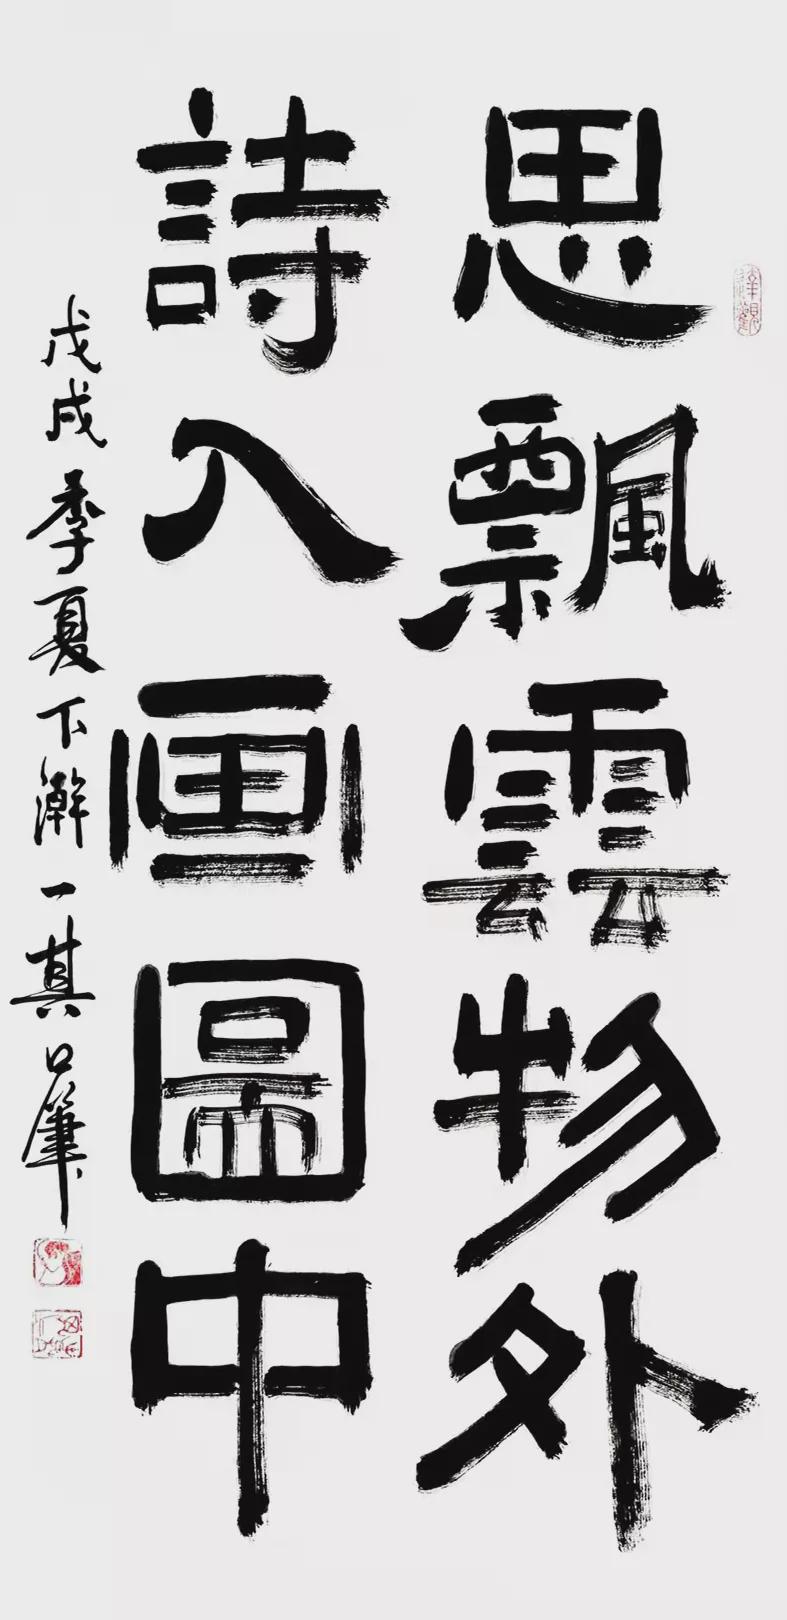 思飄雲物外
詩入画圖中
戊戌季夏下澣一其口筆